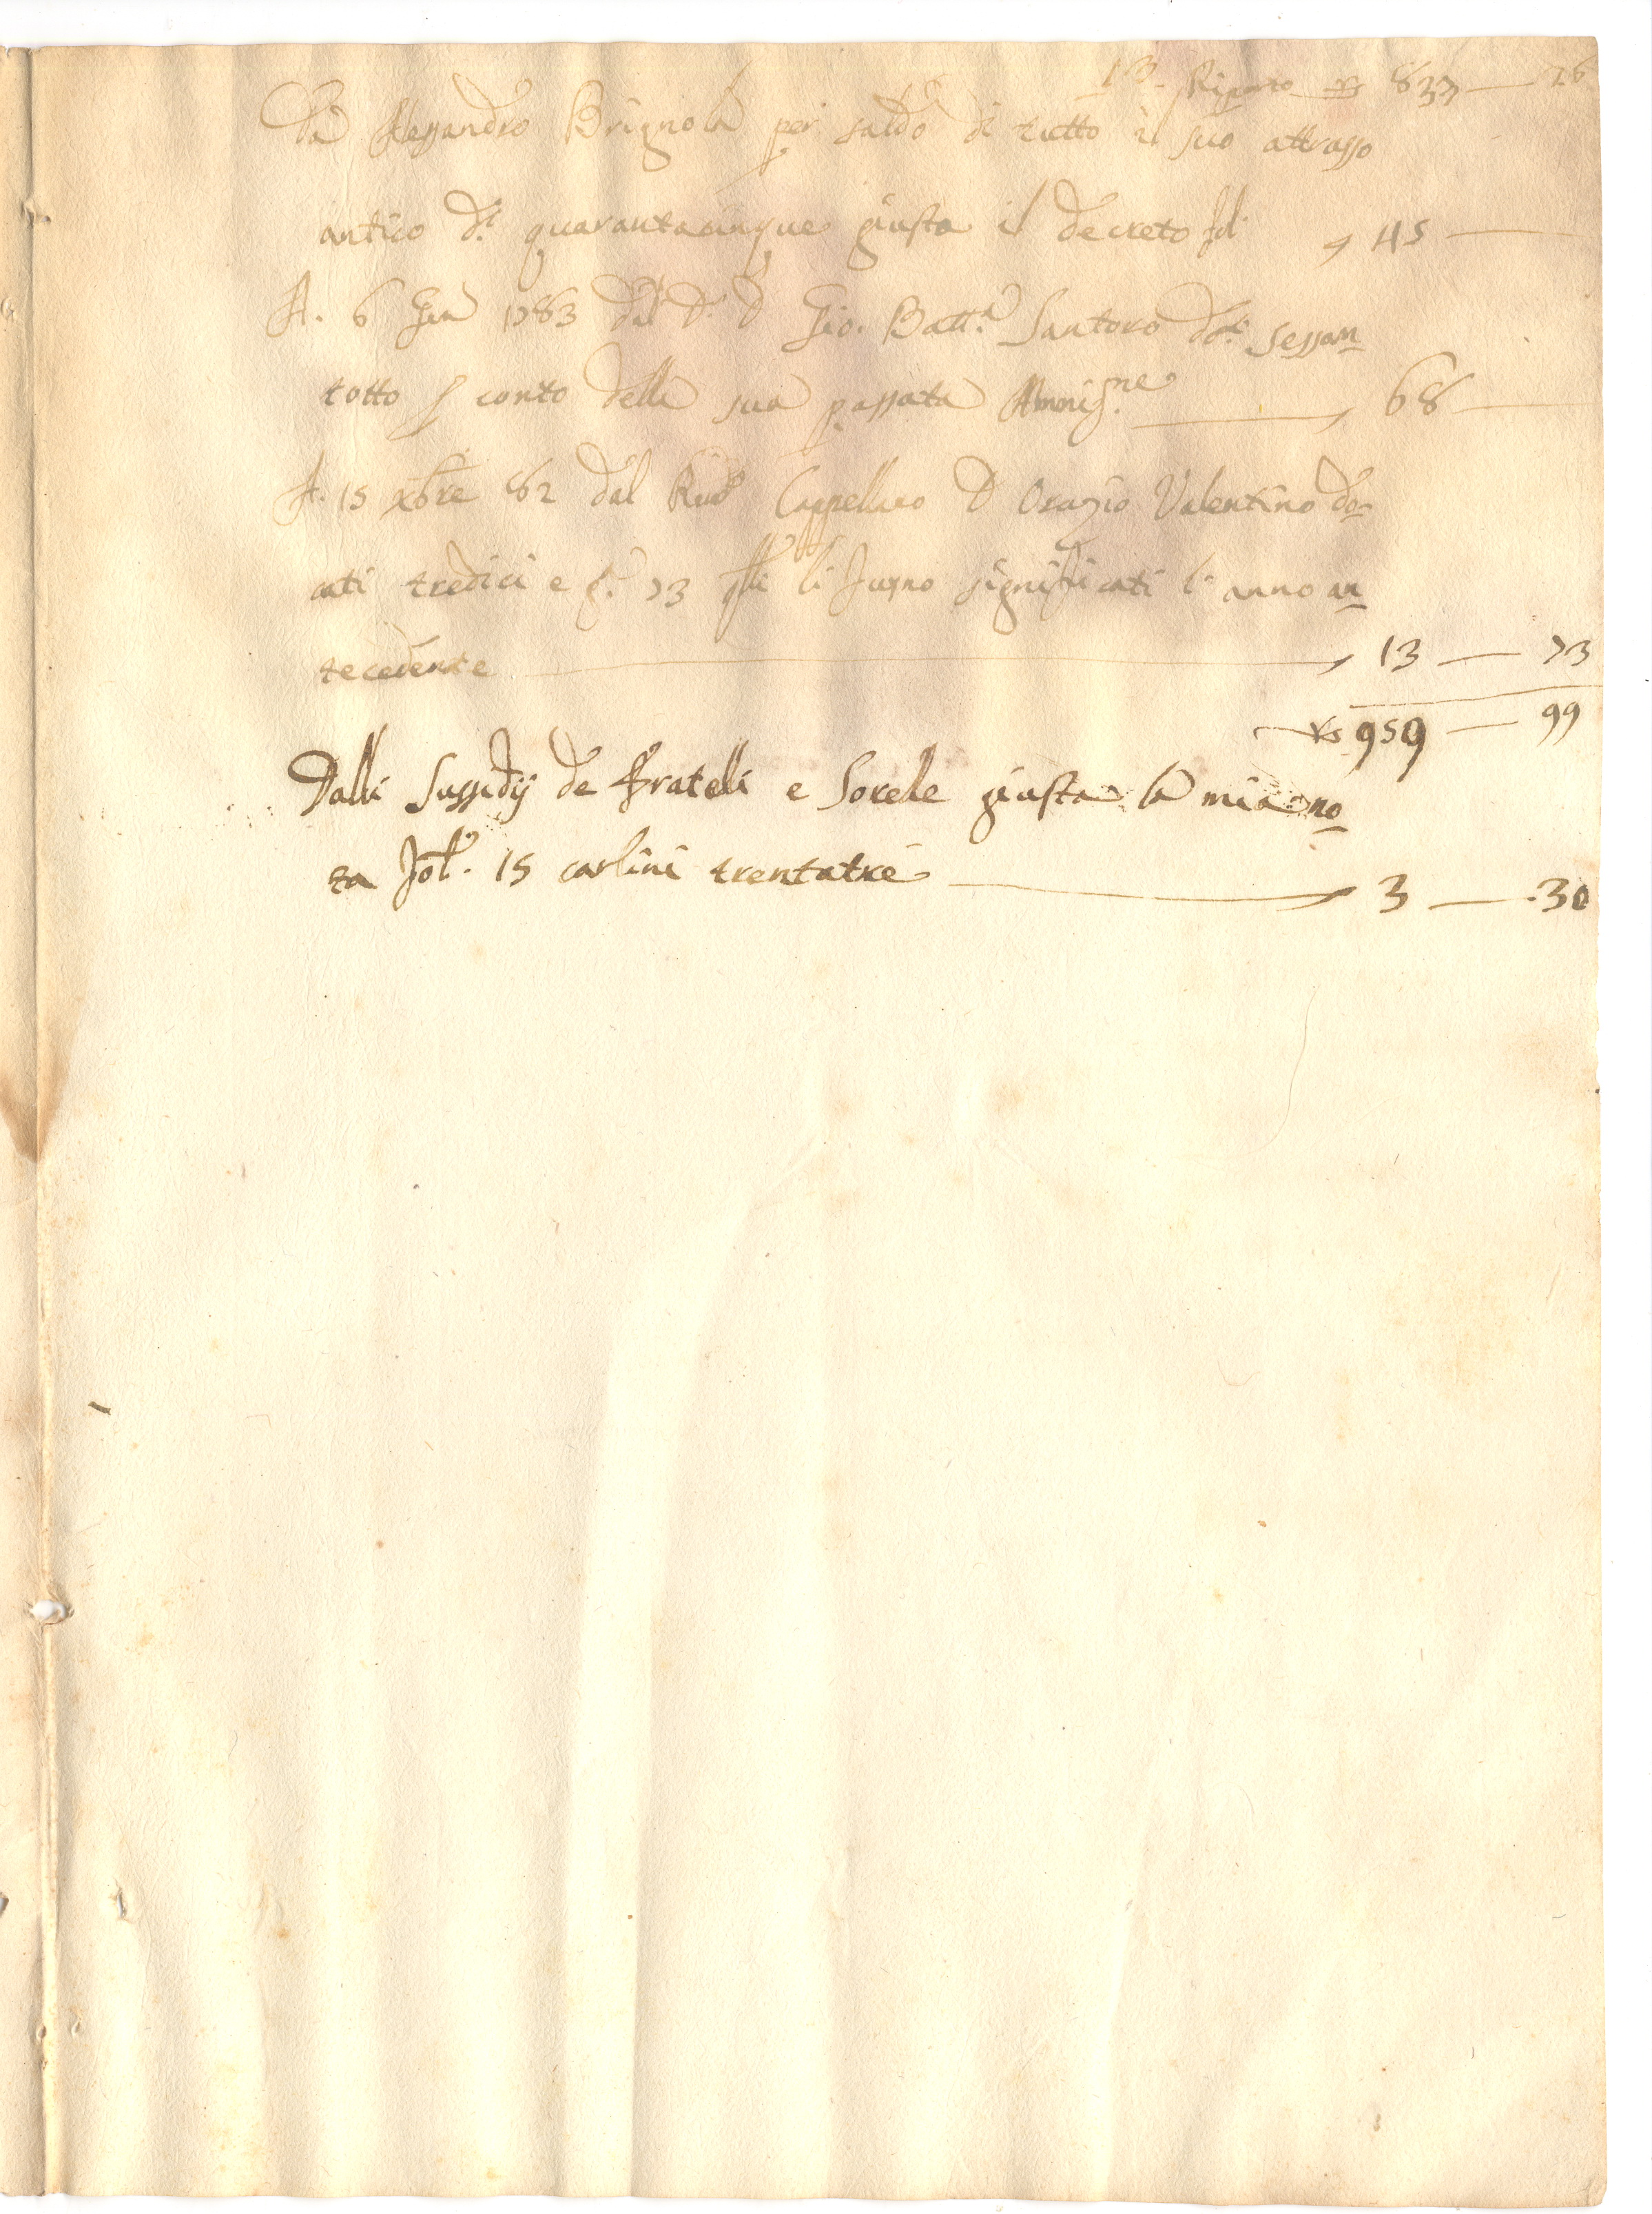 13. Riporto D. 833 — 26
Da Alessandro Brignola per saldo di tutto il suo attrasso
antico D.ti quarantacinque giusta il decreto fol , 45 —
A. 6 Gen 1783 dal D. D Gio. Batt.a Santoro D.ti sessan
totto conto della sua passata Amnis.ne — , 68 —
A. 15 Xbre 82 dal Rndo Cappellano D Orazio Valentino do=
cati tredici e g. 73 li furno significati l'anno an
tecedente — , 13 — 73
D.s 959 — 99
Dalli Sussidij de Fratelli e Sorelle giusta la mia no
ta fol. 15 carlini trentatre — , 3 — 30